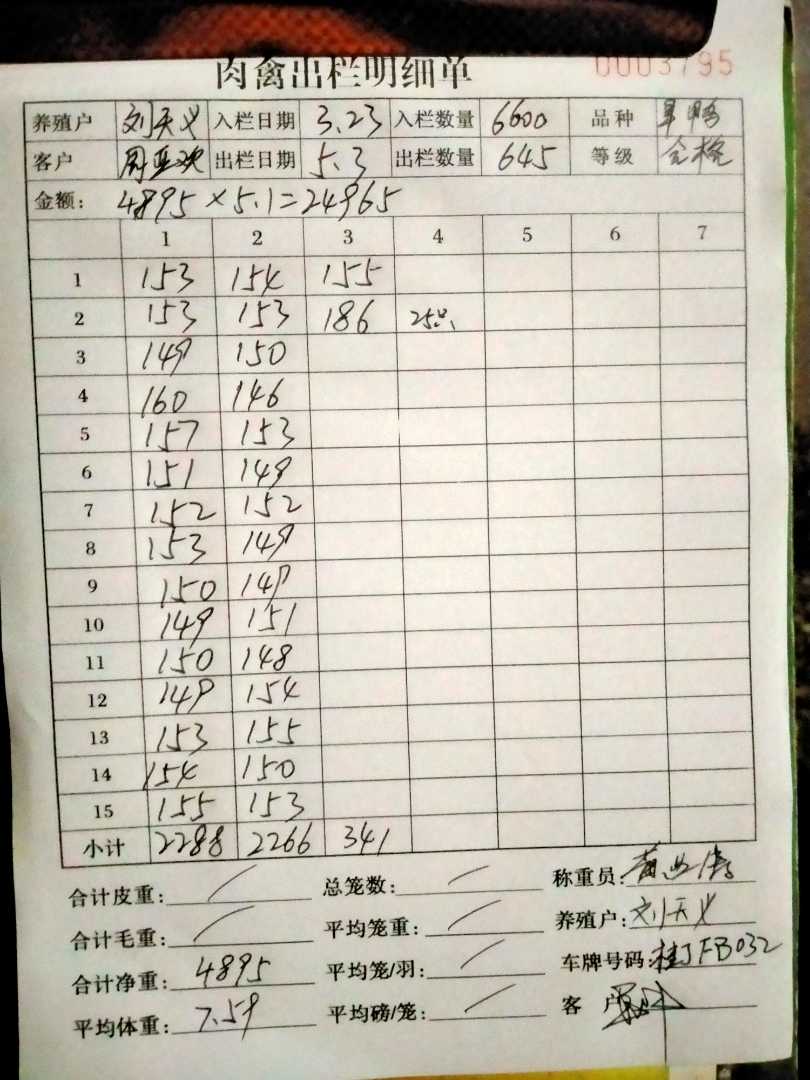 肉禽出栏明细单 0003795
养殖户 刘天义 入栏日期 3.23 入栏数量 6600 品种 旱鸭
客户 周亚欢 出栏日期 5.3 出栏数量 645 等级 合格
金额: 4895×5.1=24965
1 2 3 4 5 6 7
1 153 154 155
2 153 153 186 25只
3 149 150
4 160 146
5 157 153
6 151 149
7 152 152
8 153 149
9 150 149
10 149 151
11 150 148
12 149 154
13 153 155
14 154 150
15 155 153
小计 2288 2266 341
合计皮重: / 总笼数: / 称重员:
合计毛重: / 平均笼重: / 养殖户: 刘天义
合计净重: 4895 平均笼/羽: / 车牌号码: 桂JFB032
平均体重: 7.59 平均磅/笼: / 客 户